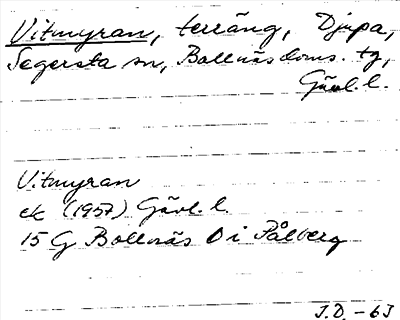 Vitmyran, terräng, Djupa,
Segersta sn, Bollnäs doms. tg,
Gävl. l.
Vitmyran
ek (1957) Gävl. l.
15 G Bollnäs O i Pålberg
J.D. -63